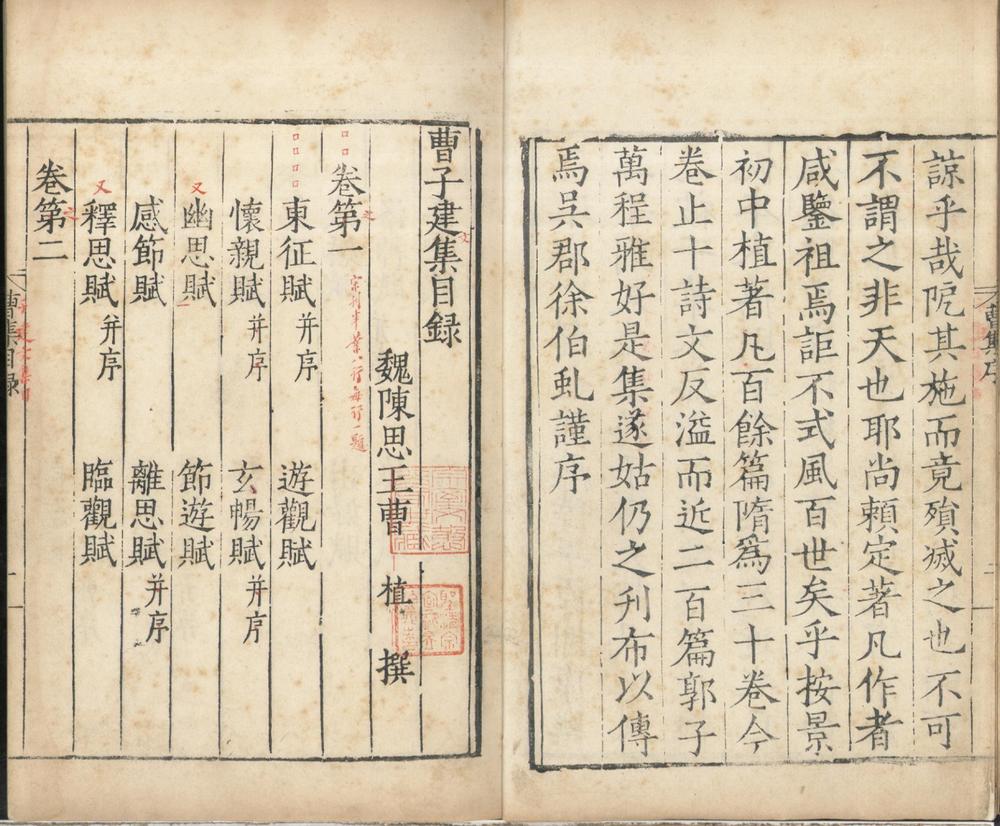 諒乎哉阨其施而竟殞滅之也不可
不謂之非天也耶尚賴定著凡作者
咸鑒祖焉詎不式風百世矣乎按景
初中植著凡百餘篇隋為三十卷今
卷止十詩文反溢而近二百篇郭子
萬程雅好是集遂姑仍之刋布以傳
焉吳郡徐伯虬謹序
曹集序
曹子建集目録
魏陳思王曹植撰
卷第一
宋刋半葉八行每行一題
東征賦并序 遊觀賦
懷親賦并序 玄暢賦并序
又
幽思賦 節遊賦
感節賦 離思賦并序
又
釋思賦并序 臨觀賦
卷第二
曹集目録